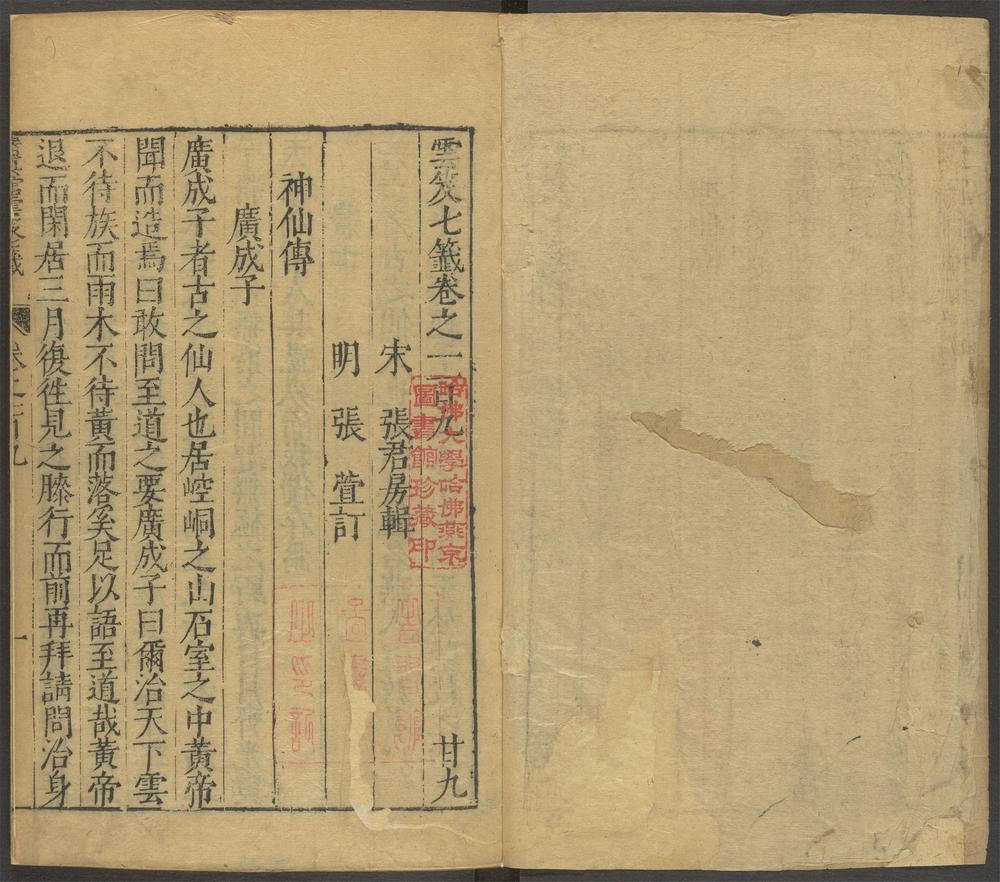 雲笈七籤卷之一百九 廿九
宋 張君房輯
明 張萱訂
神仙傳
廣成子
廣成子者古之仙人也居崆峒之山石室之中黃帝
聞而造焉曰敢問至道之要廣成子曰爾治天下雲
不待族而雨木不待黃而落奚足以語至道哉黃帝
退而閑居三月復徃見之膝行而前再拜請問治身
卷之百九 一
哈佛大學哈佛燕京
圖書館珍藏印